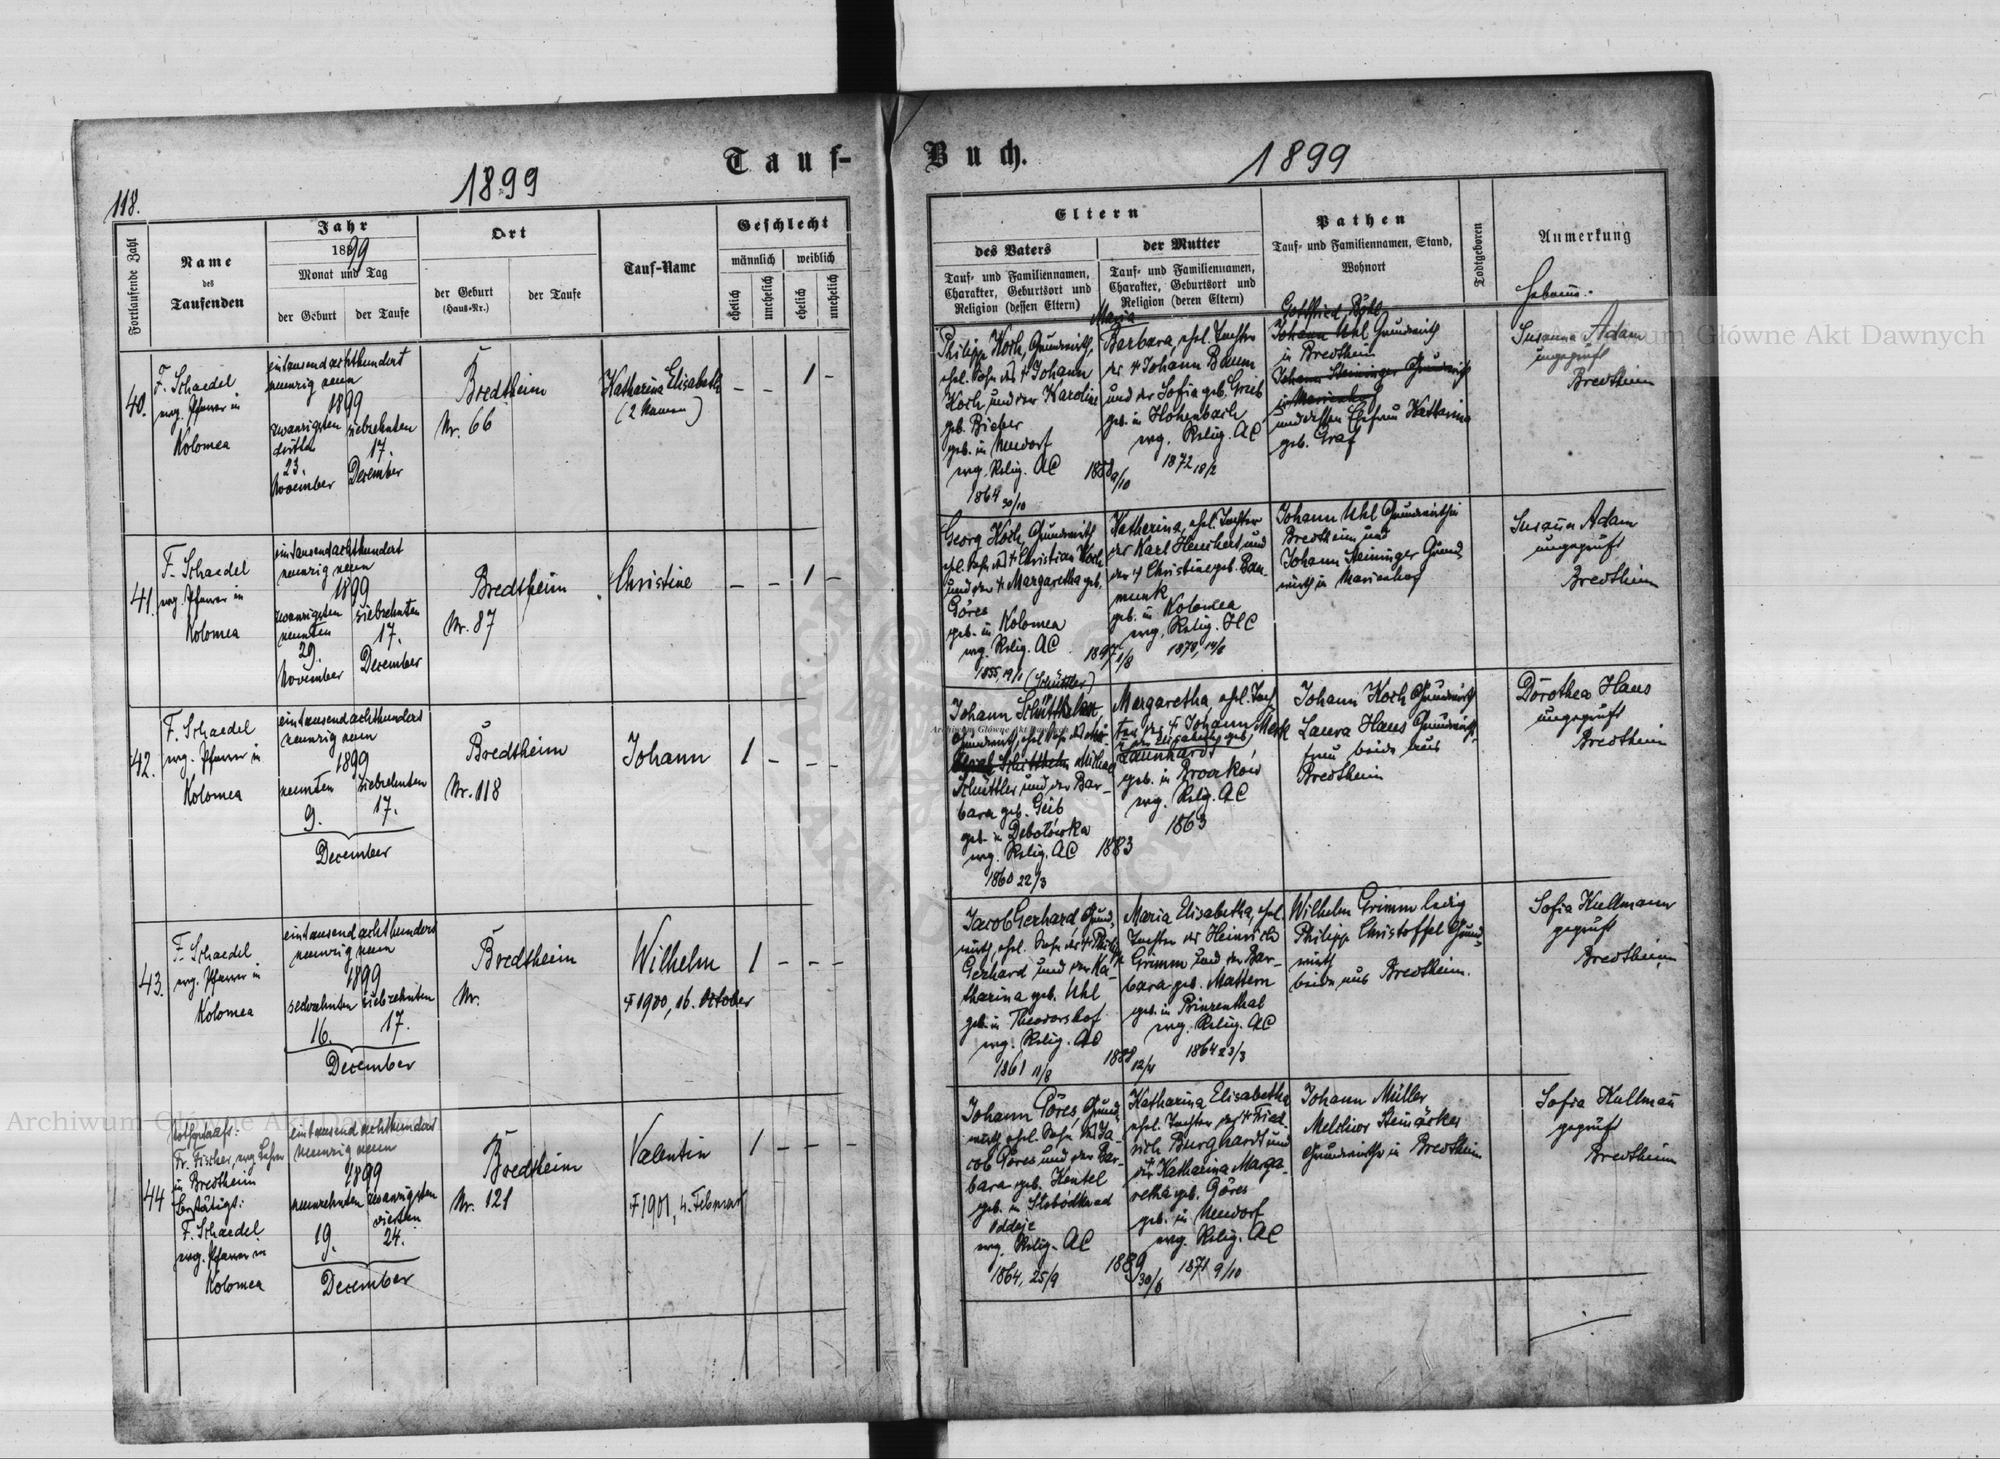 Tauf-
Buch.
118.
1899
1899
Fortlaufende Zahl
Name
des
Taufenden
Jahr
1899
Monat und Tag
der Geburt
der Taufe
Ort
der Geburt
(Haus-Nr.)
der Taufe
Tauf-Name
Geschlecht
männlich
weiblich
ehelich
unehelich
ehelich
unehelich
Eltern
des Vaters
Tauf- und Familiennamen,
Charakter, Geburtsort und
Religion (dessen Eltern)
der Mutter
Tauf- und Familiennamen,
Charakter, Geburtsort und
Religion (deren Eltern)
Pathen
Tauf- und Familiennamen, Stand,
Wohnort
Todtgeboren
Anmerkung
40.
F. Schaedel
evg. Pfarrer in
Kolomea
eintausendachthundert
neunzig neun
1899
zwanzigsten
dritten
23.
November
siebzehnten
17.
December
Bredtheim
Nr. 66
Katharina Elisabeth
(2 Namen)
- - 1 -
Philipp Koch, Grundwirth,
ehel. Sohn des † Johann
Koch und der Karoline
geb. Bieber
geb. in Neudorf
evg. Relig. AC
1864 30/10
Maria
Barbara, ehel. Tochter
des † Johann Baum
und der Sofia geb. Grieb
geb. in Hohenbach
evg. Relig. AC
1872 18/2
Gottfried
Johann Uhl Grundwirth
in Bredtheim
Johann Steininger Grundwirth
in Marienhof
und dessen Ehefrau Katharina
geb. Graf
Susanna Adam
ungeprüft
Bredtheim
41.
F. Schaedel
evg. Pfarrer in
Kolomea
eintausendachthundert
neunzig neun
1899
zwanzigsten
neunten
29.
November
siebzehnten
17.
December
Bredtheim
Nr. 87
Christine
- - 1 -
Georg Koch, Grundwirth
ehel. Sohn des † Christian Koch
und der † Margaretha geb.
Göres
geb. in Kolomea
evg. Relig. AC
1855, 19/1
Katharina, ehel. Tochter
des Karl Henchert und
der † Christine geb. Bau-
munk
geb. in Kolomea
evg. Relig. HC
1897 1/8
Johann Uhl Grundwirth in
Bredtheim und
Johann Steininger Grund-
wirth in Marienhof
Susanna Adam
ungeprüft
Bredtheim
42.
F. Schaedel
evg. Pfarrer in
Kolomea
eintausendachthundert
neunzig neun
1899
neunten
9.
siebzehnten
17.
December
Bredtheim
Nr. 118
Johann
1 - - -
(Schüttler)
Johann
Michael
Schüttler und der Bar-
bara geb. Geib
geb. in Debolówka
evg. Relig. AC
1860 22/3
1883
Margaretha, ehel. Toch-
ter des † Johann Merk
und der Elisabeth geb.
Launhardt
geb. in Broczków
evg. Relig. AC
1863
Johann Koch Grundwirth
Laura Haus Grundwirths-
frau beide aus
Bredtheim
Dorothea Haus
ungeprüft
Bredtheim
43.
F. Schaedel
evg. Pfarrer in
Kolomea
eintausendachthundert
neunzig neun
1899
sechzehnten
16.
siebzehnten
17.
December
Bredtheim
Nr.
Wilhelm
† 1900, 16. October
1 - - -
Jacob Gerhard, Grund-
wirth, ehel. Sohn des † Philipp
Gerhard und der Ka-
tharina geb. Uhl
geb. in Theodorshof
evg. Relig. AC
1861 11/8
1888 12/4
Maria Elisabetha, ehel.
Tochter des Heinrich
Grimm und der Bar-
bara geb. Mattern
geb. in Prinzenthal
evg. Relig. AC
1864 23/3
Wilhelm Grimm ledig
Philipp Christoffel Grund-
wirth
beide aus Bredtheim.
Sofia Kullmann
geprüft
Bredtheim
44
Nothgetauft:
Fr. Fischer, evg. Lehrer
in Bredtheim
Bestätigt:
F. Schaedel
evg. Pfarrer in
Kolomea
eintausendachthundert
neunzig neun
1899
neunzehnten
19.
zwanzigsten
vierten
24.
December
Bredtheim
Nr. 121
Valentin
† 1901, 4. Februar
1 - - -
Johann Göres, Grund-
wirth ehel. Sohn des Ja-
cob Göres und der Bar-
bara geb. Hentel
geb. in Slobodka ad
Oddaje
evg. Relig. AC
1864, 25/9
1889 30/6
Katharina Elisabetha
ehel. Tochter des † Fried-
rich Burghardt und
der Katharina Marga-
retha geb. Göres
geb. in Neudorf
evg. Relig. AC
1871 9/10
Johann Müller
Melchior
Grundwirthe in Bredtheim
Sofia Kullmann
geprüft
Bredtheim
Archiwum Główne Akt Dawnych
Archiwum Główne Akt Dawnych
Archiwum Główne Akt Dawnych